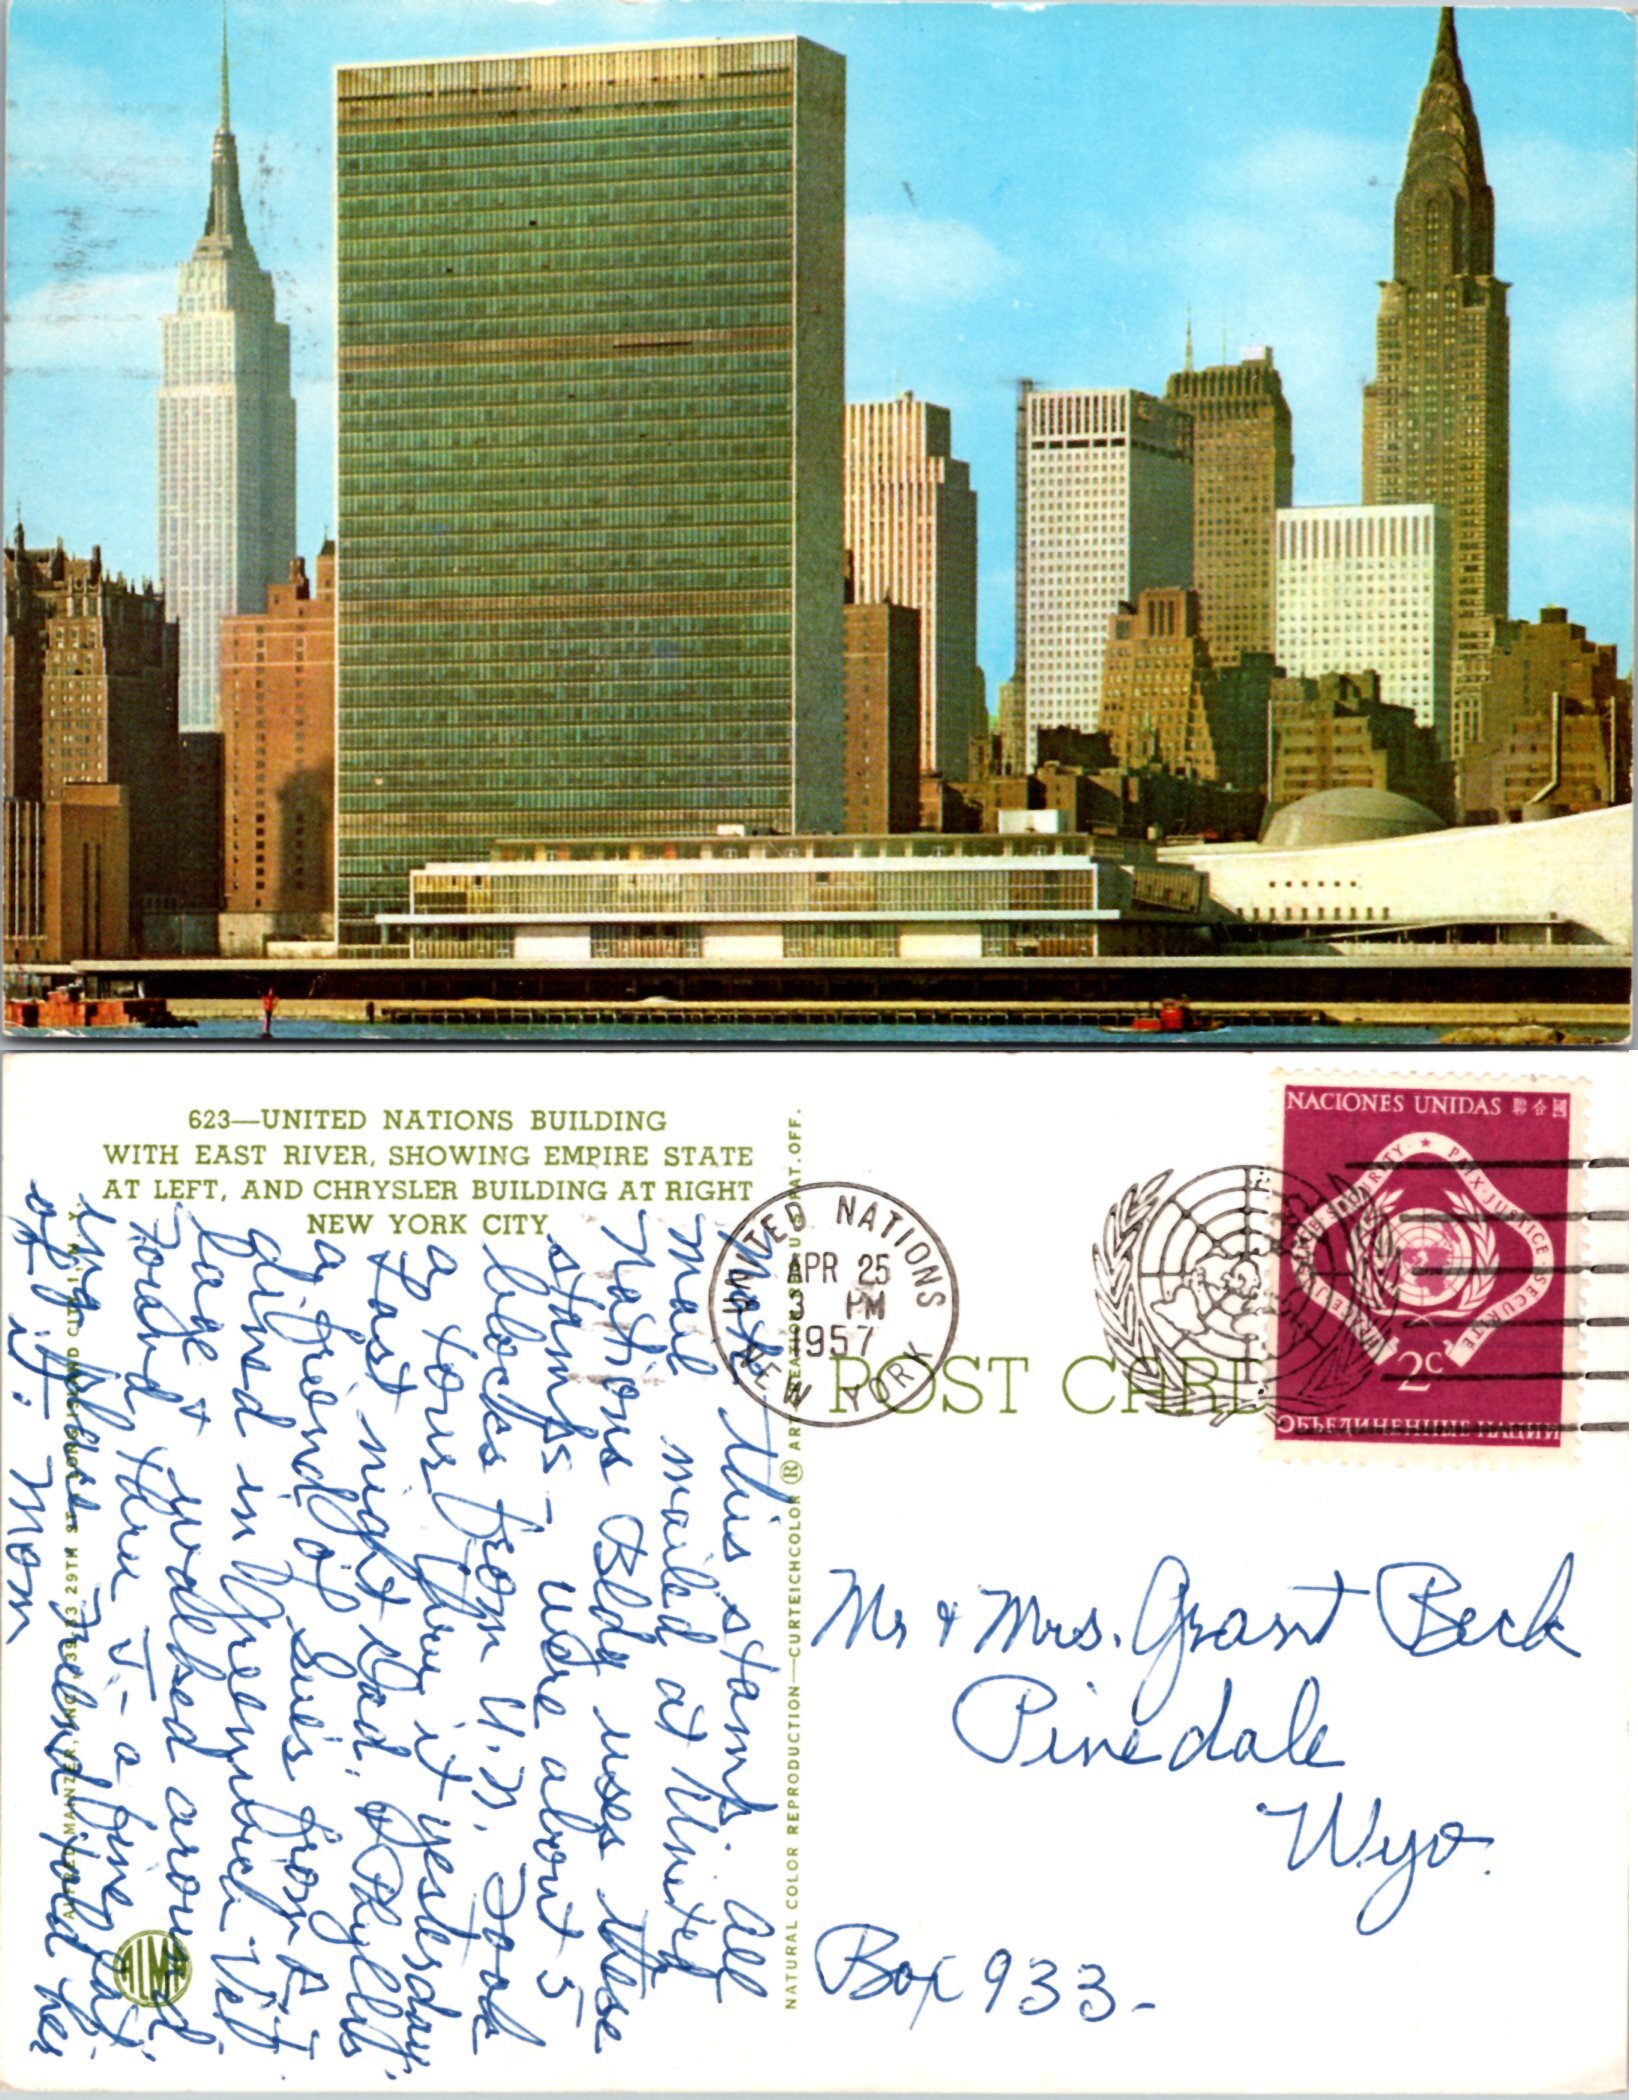 623—UNITED NATIONS BUILDING
WITH EAST RIVER, SHOWING EMPIRE STATE
AT LEFT, AND CHRYSLER BUILDING AT RIGHT
NEW YORK CITY
Note this stamp. All
mail mailed at United
Nations Bldg uses these
stamps - were about 5
blocks from U.N. Took
a tour thru it yesterday.
Last night Dad, & Phyllis
a friend of Sue's from
dined in Greenwich Vill
lage & walked around
Found thru a
ing place friend told her
of it. Mom
ALFRED MAINZER, INC., 39-33 29TH ST. LONG ISLAND CITY 1, N. Y.
ALMA
NATURAL COLOR REPRODUCTION—CURTEICHCOLOR ® ART CREATION REG. U.S. PAT. OFF.
UNITED NATIONS
APR 25
3 PM
1957
NEW YORK
POST CARD
NACIONES UNIDAS 聯合國
PAIX·JUSTICE·SECURITE
2c
ОБЪЕДИНЕННЫЕ НАЦИИ
Mr & Mrs. Grant Beck
Pinedale
Wyo.
Box 933-